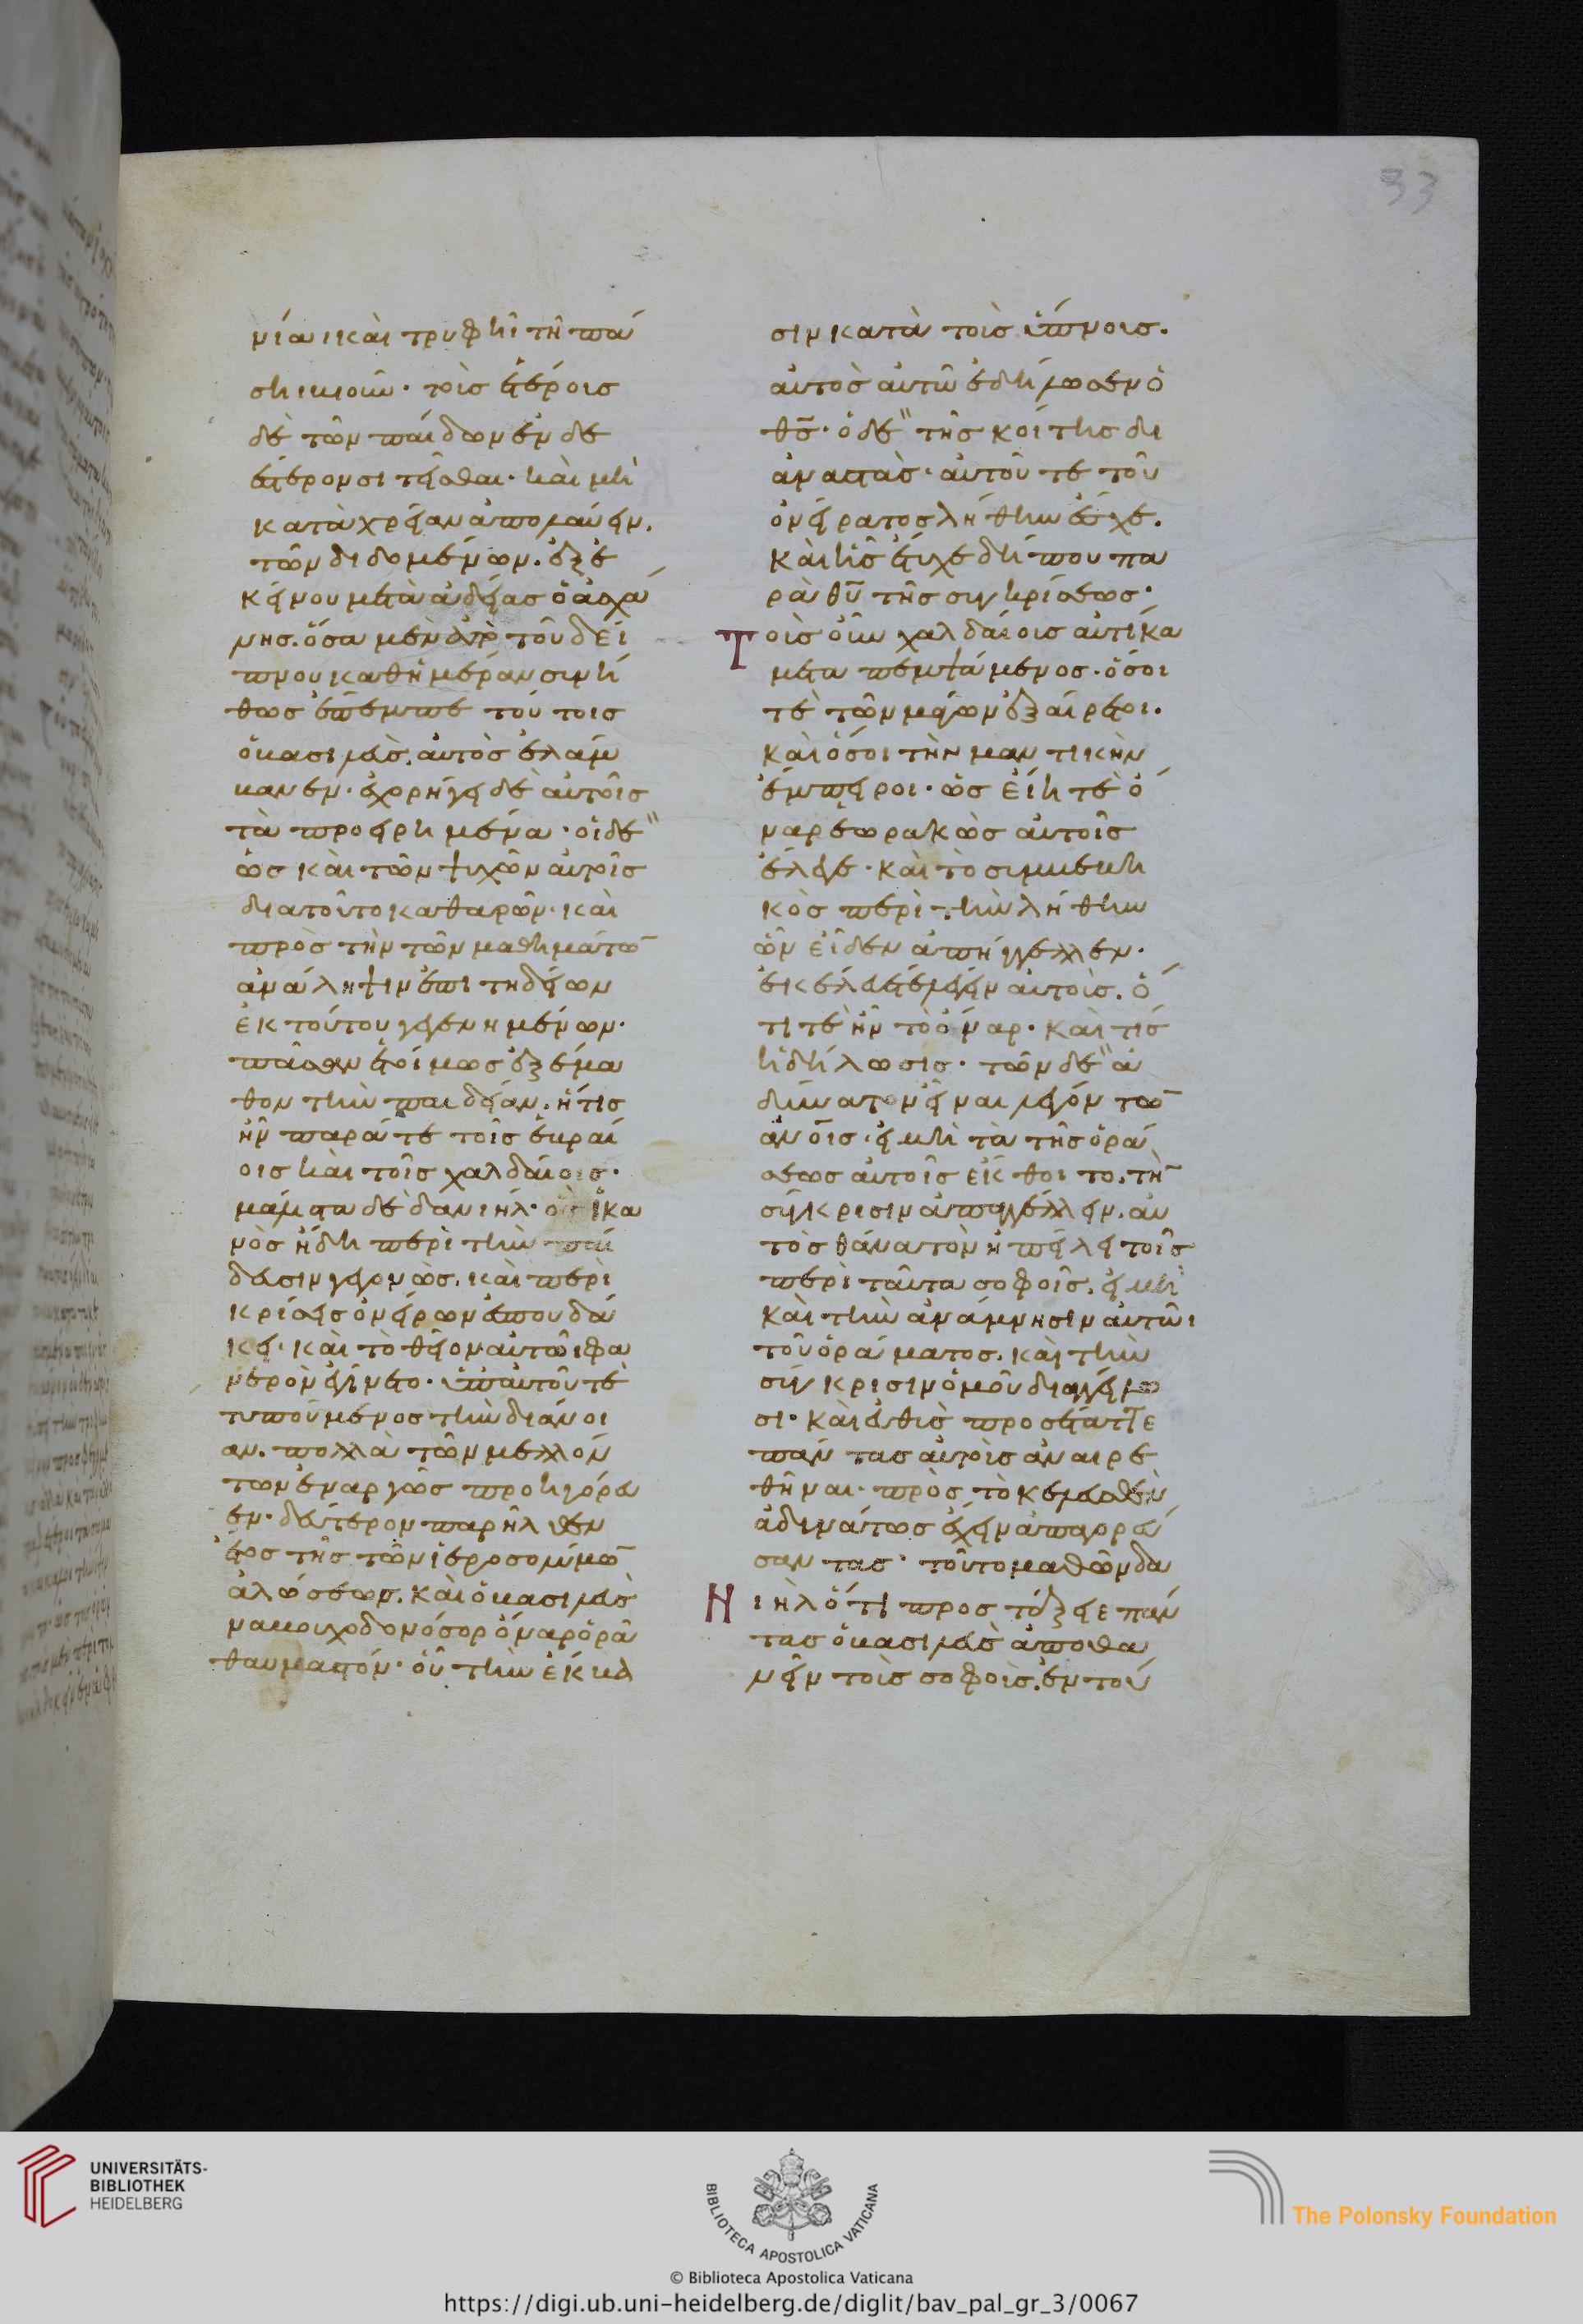 μίαι καὶ τρυφῆι τῆ πά
σηι βιοῦν· τοῖς ἑτέροις
δὲ τῶν παίδων ἐνδε
έστερον σιτεῖσθαι· καὶ μὴ
κατὰ χρείαν ἀπολαύειν.
τῶν διδομένων. ἐξ ἐ
κείνου μετὰ ἀδείας ὁ ἀσχά
νης. ὅσα μὲν ἀπὸ τοῦ δεί
πνου καθημέραν συνή
θως ἔπεμπε τούτοις
ὁ βασιλεὺς. αὐτὸς ἐλάμ
βανεν. ἐχορήγει δὲ αὐτοῖς
τὰ προειρημένα· οἱ δὲ
ὡς καὶ τῶν ψυχῶν αὐτοῖς
διατοῦτο καθαρῶν· καὶ
πρὸς τὴν τῶν μαθημάτω̄
ἀνάληψιν ἐπιτηδείων
ἐκ τούτου γεγενημένων·
πᾶσαν ἑτοίμως ἐξέμα
θον τὴν παιδείαν. ἥτις
ἦν παρά τε τοῖς ἑβραί
οις καὶ τοῖς χαλδαίοις·
μάλιστα δὲ δανιήλ· ὃς ἱκα
νὸς ἤδη περὶ τὴν παί
δευσιν γεγονὼς. καὶ περὶ
κρίσεις ὀνείρων ἐσπουδά
κει· καὶ τὸ θεῖον αὐτῶι φα
νερὸν ἐγίνετο· ὑπαὐτοῦ τὲ
τυπούμενος τὴν διάνοι
αν. πολλὰ τῶν μελλόν
των ἐναργῶς προηγόρευ
εν· δεύτερον παρῆλθεν
ἔτος τῆς τῶν ἱεροσολύμω̄
ἁλώσεως. καὶ ὁ βασιλεὺς
ναβουχοδονόσορ ὄναρ ὁρᾶ
θαυμαστόν· οὗ τὴν ἔκβα
σιν κατὰ τοὺς ὕπνους.
αὐτὸς αὐτῶ ἐδήλωσεν ὁ
θς̄· ὁ δὲ τῆς κοίτης δι
αναστὰς· αὐτοῦ τε τοῦ
ὀνείρατος λήθην ἔσχε.
καὶ ἧς ἔτυχε δήπου πα
ρὰ θῡ τῆς συγκρίσεως·
Τοὺς οὖν χαλδαίους αὐτίκα
μεταπεμψάμενος· ὅσοι
τὲ τῶν μάγων ἐξαίρετοι.
καὶ ὅσοι τὴν μαντικὴν
ἔμπειροι· ὡς εἴη τὲ ὄ
ναρ ἑωρακὼς αὐτοῖς
ἔλεγε· καὶ τὸ συμβεβη
κὸς περὶ τὴν λήθην
ὧν εἶδεν ἀπήγγελλεν·
ἐκέλευέ τε λέγειν αὐτοὺς. ὅ
τι τὲ ἦν τὸ ὄναρ· καὶ τίς
ἡ δήλωσις· τῶν δὲ ἀ
δύνατον εἶναι λεγόντω̄
ἀνοις· εἰ μὴ τὰ τῆς ὁρά
σεως αὐτοῖς ἔκθοιτο. τὴ̄
σύγκρισιν ἀπαγγέλλειν. αὐ
τὸς θάνατον ἠπείλει τοῖς
περὶ ταῦτα σοφοῖς. εἰ μὴ
καὶ τὴν ἀνάμνησιν αὐτῶι
τοῦ ὁράματος. καὶ τὴν
σύγκρισιν ὁμοῦ διαγγείλω
σι· καὶ εὐθὺς προσέταττε
πάντας αὐτοὺς ἀναιρε
θῆναι· πρὸς τὸ κελευσθὲν
ἀδυνάτως ἔχειν ἀπαγορεύ
σαντας· τοῦτο μαθὼν δα
Νιὴλ ὅτι προστάξειε πάν
τας ὁ βασιλεὺς ἀποθα
νεῖν τοὺς σοφοὺς. ἐν τού
33
UNIVERSITÄTS-
BIBLIOTHEK
HEIDELBERG
BIBLIOTECA APOSTOLICA VATICANA
The Polonsky Foundation
© Biblioteca Apostolica Vaticana
https://digi.ub.uni-heidelberg.de/diglit/bav_pal_gr_3/0067